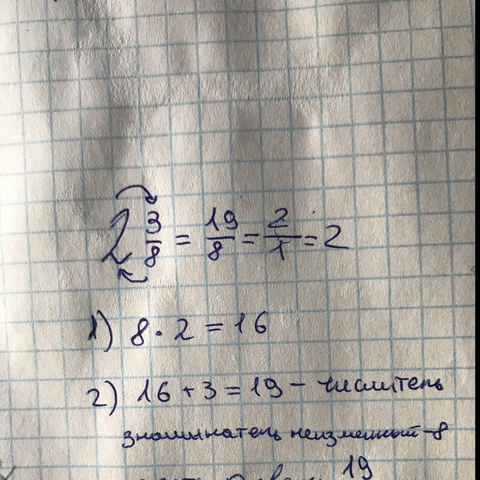 2 3/8 = 19/8 = 2/1 = 2
1) 8 · 2 = 16
2) 16 + 3 = 19 – числитель
знаминатель неизменный –8
19